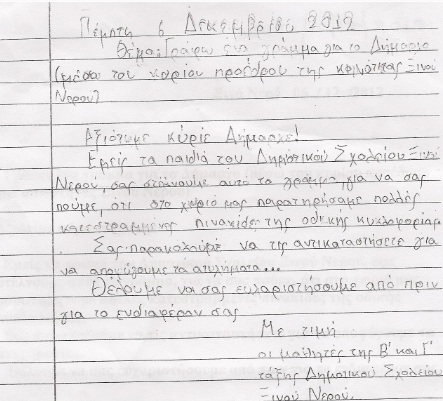 Πέμπτη 6 Δεκεμβρίου 2012
Θέμα: Γράφω ένα γράμμα για το Δήμαρχο
(μέσα του κυρίου προέδρου της κοινότητας Ξινού
Νερού)
Αξιότιμε κύριε Δήμαρχε!
Εμείς τα παιδιά του Δημοτικού Σχολείου Ξινού
Νερού, σας στέλνουμε αυτό το γράμμα, για να σας
πούμε, ότι στο χωριό μας παρατηρήσαμε πολλές
κατεστραμμένες πινακίδες της οδικής κυκλοφορίας.
Σας παρακαλούμε να τις αντικαταστήσετε για
να αποφύγουμε τα ατυχήματα...
Θέλουμε να σας ευχαριστήσουμε από πριν
για το ενδιαφέρον σας
Με τιμή
οι μαθητές της Β' και Γ'
τάξης Δημοτικού Σχολείου
Ξινού Νερού.